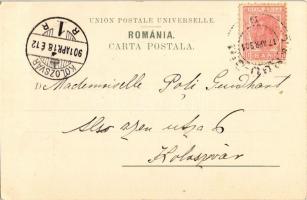 UNION POSTALE UNIVERSELLE.
ROMÂNIA.
CARTA POSTALA.
KOLOZSVÁR
901 APR 18 E 12
R 1 R
17 APR
D Mademoiselle Poli
Also szen utza 6
Kolozsvár